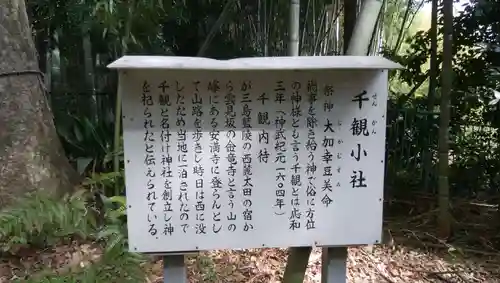 千観小社
せんかん
祭神 大加幸豆美命
おおかむずみ
禍事を除き給う神で俗に方位
の神様とも言う千観とは応和
三年(神武紀元一六〇四年)
千観内侍
が三島藍陵の西麓太田の宿か
ら雲見坂の金竜寺と言う山の
峰にある安満寺に登らんとし
て山路を歩きし時日は西に没
したため当地に一泊されたので
千観と名付け神社を創立し神
を祀られたと伝えられている。